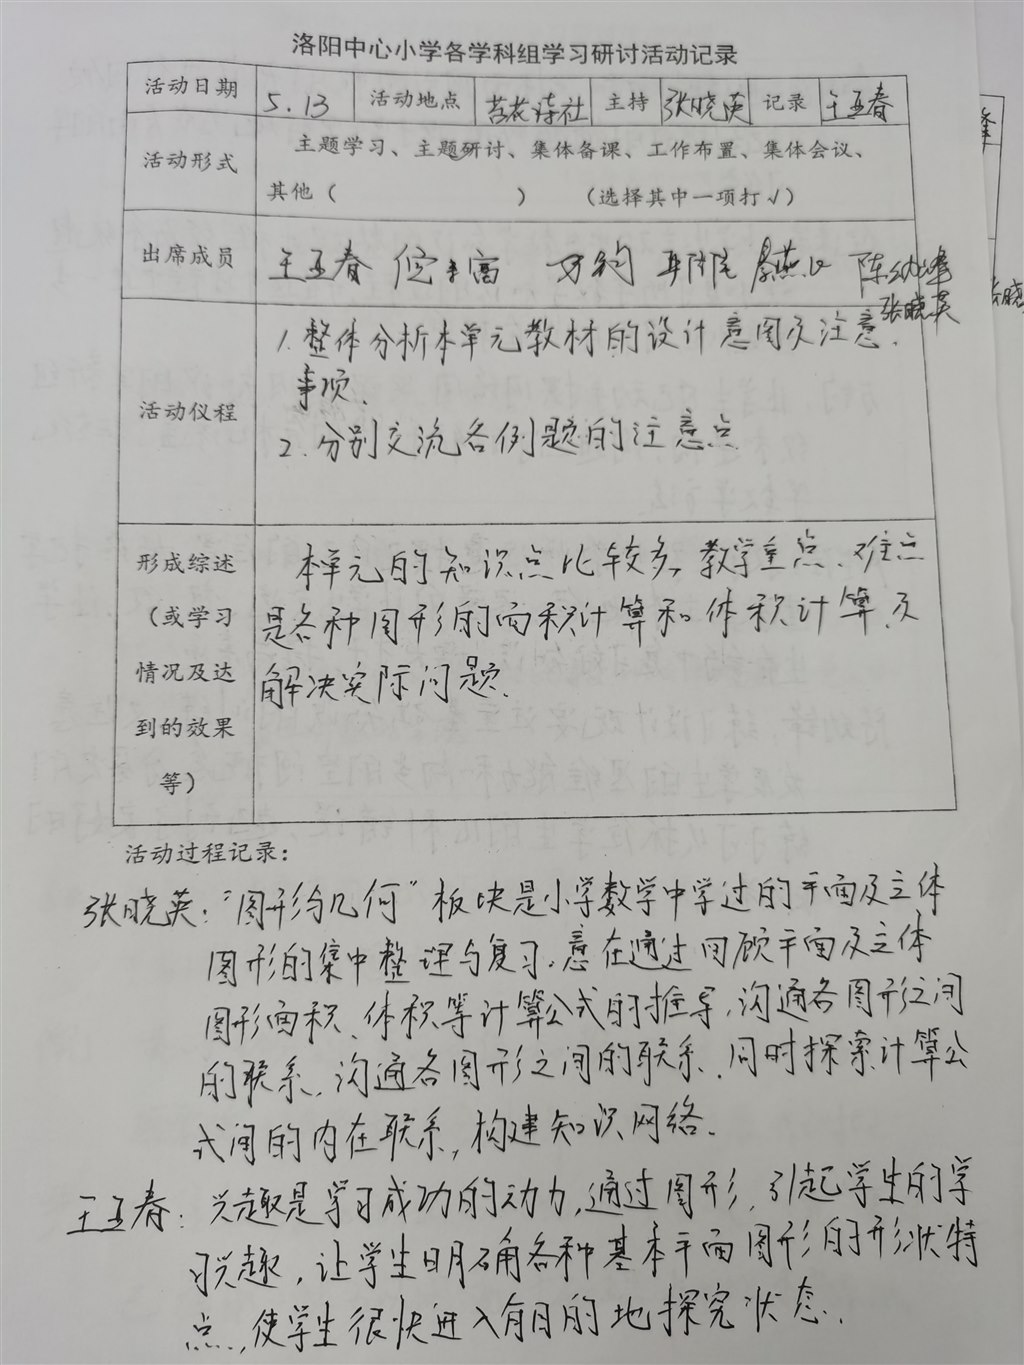 洛阳中心小学各学科组学习研讨活动记录
活动日期 5.13 活动地点 苔花诗社 主持 张晓英 记录 王亚春
活动形式 主题学习、主题研讨、集体备课、工作布置、集体会议、
其他（ ） （选择其中一项打√）
出席成员 王亚春 陈幼峰
张晓英
活动仪程
1.整体分析本单元教材的设计意图及注意
事项.
2.分别交流各例题的注意点
形成综述
（或学习
情况及达
到的效果
等）
本单元的知识点比较多,教学重点、难点
是各种图形的面积计算和体积计算,及
解决实际问题.
活动过程记录：
张晓英："图形与几何"板块是小学数学中学过的平面及立体
图形的集中整理与复习.意在通过回顾平面及立体
图形面积、体积等计算公式的推导,沟通各图形之间
的联系,沟通各图形之间的联系.同时探索计算公
式间的内在联系,构建知识网络.
王亚春：兴趣是学习成功的动力,通过图形,引起学生的学
习兴趣,让学生明确各种基本平面图形的形状特
点,使学生很快进入有目的地探究状态.